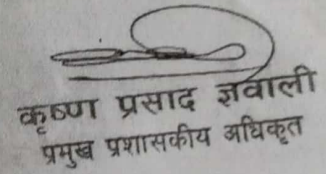 कृष्ण प्रसाद ज्ञवाली
प्रमुख प्रशासकीय अधिकृत